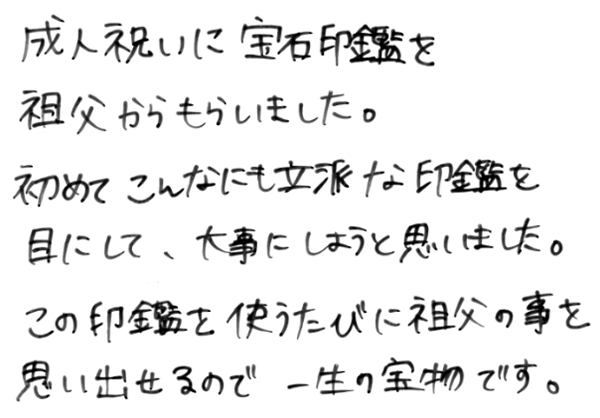 成人祝いに宝石印鑑を
祖父からもらいました。
初めてこんなにも立派な印鑑を
目にして、大事にしようと思いました。
この印鑑を使うたびに祖父の事を
思い出せるので一生の宝物です。